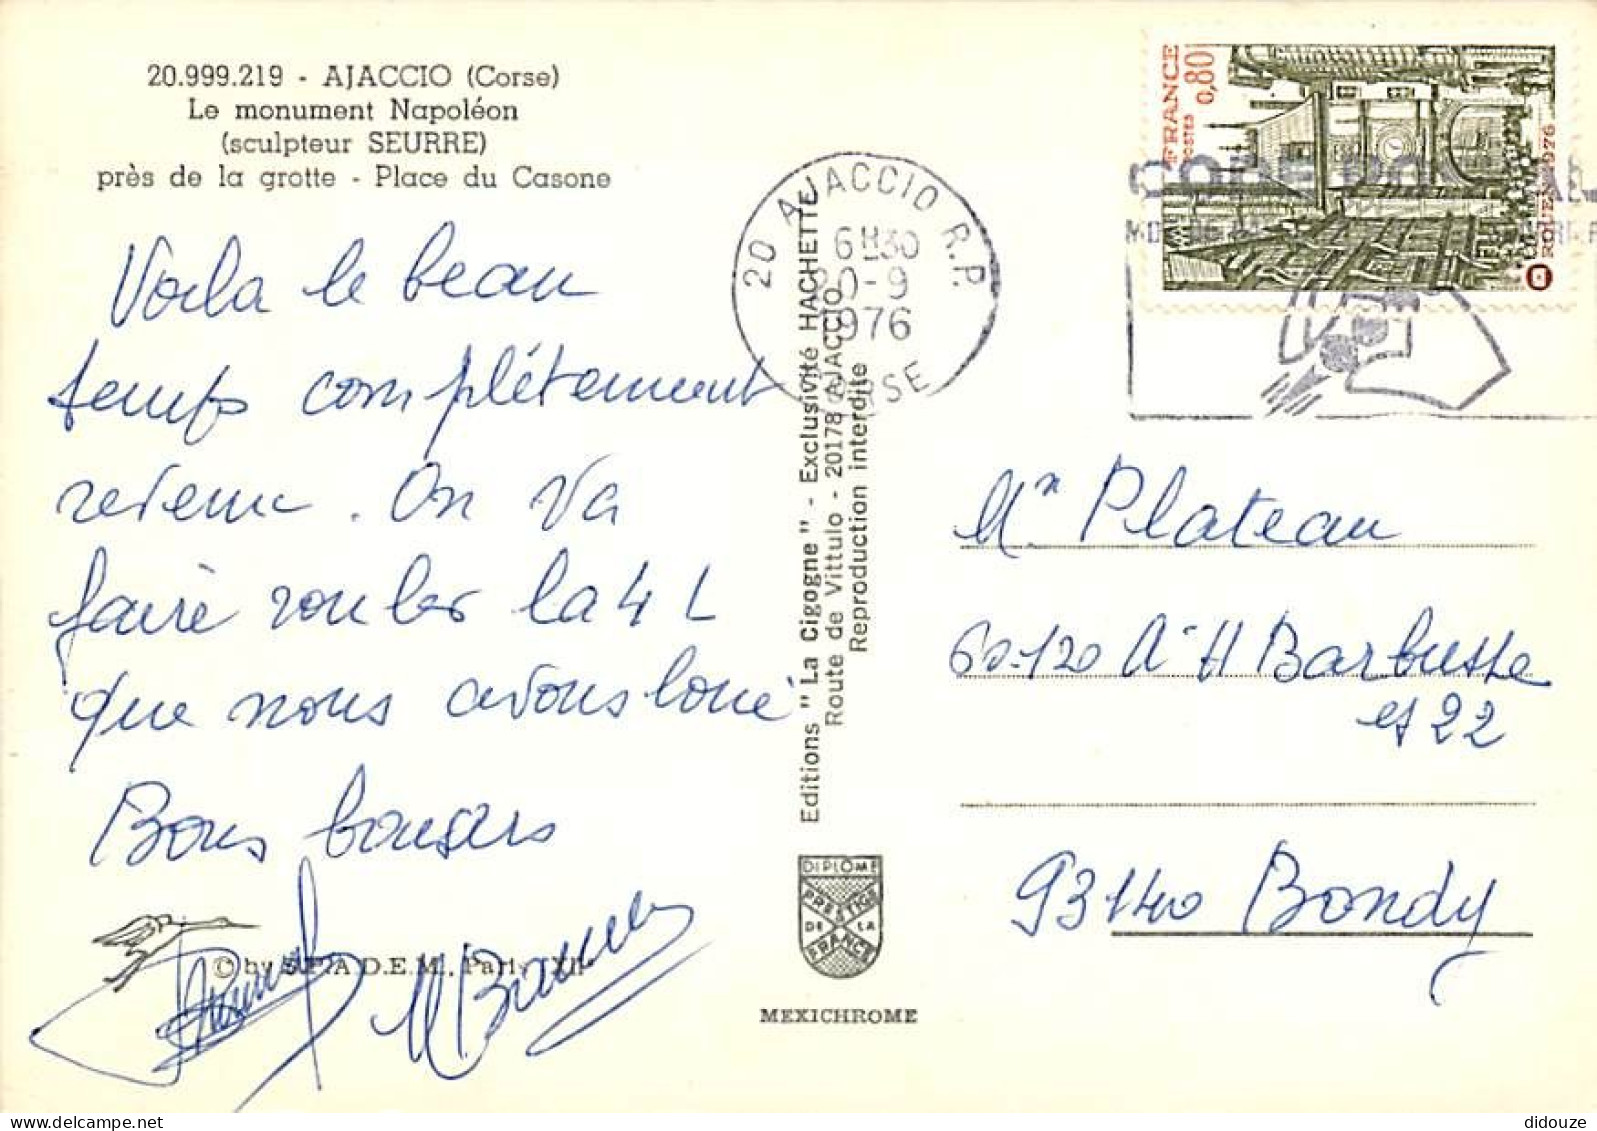 20.999.219 - AJACCIO (Corse)
Le monument Napoléon
(sculpteur SEURRE)
près de la grotte - Place du Casone
Voila le beau
temps complétement
revenu. On va
faire rouler la 4 L
que nous avons loué
Bons baisers
© by S.P.A.D.E.M., Paris
Editions "La Cigogne" - Exclusivité HACHETTE
Route de Vittulo - 20178 AJACCIO
Reproduction interdite
DIPLOME
PRESTIGE
DE LA
FRANCE
MEXICHROME
20 AJACCIO R.P.
6H30
20-9
1976
CORSE
FRANCE
POSTES 0,80
ROUEN 1976
CODE POSTAL
Mr Plateau
60-120 A H Barbusse
et 22
93140 Bondy
didouze